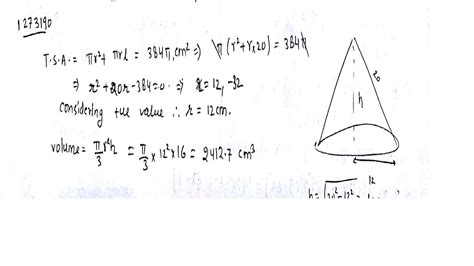 1273190
T.S.A. = πr²+ πrl = 384π, cm² => π(r²+r×20) = 384π
=> r²+20r-384=0 => r=12, -32
considering +ve value ∴ r = 12cm.
volume = π/3 r²h = π/3 × 12² × 16 = 2412.7 cm³
20
h
12
h = √20²-12² =